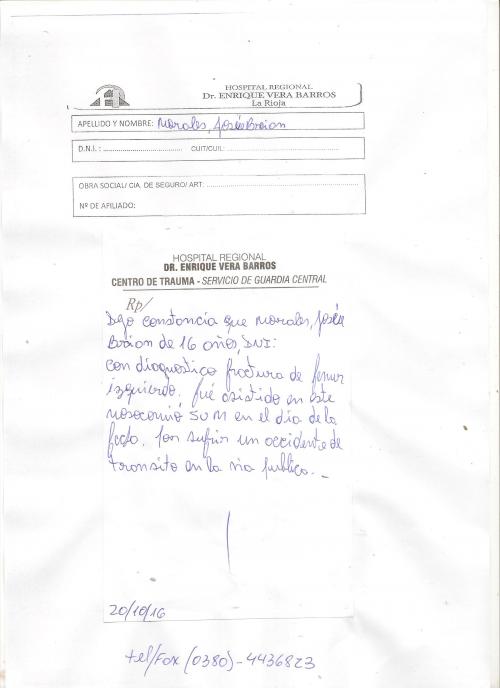 HOSPITAL REGIONAL
Dr. ENRIQUE VERA BARROS
La Rioja
APELLIDO Y NOMBRE: Morales, José Braian
D.N.I. : ........................... CUIT/CUIL: ...........................
OBRA SOCIAL/ CIA. DE SEGURO/ ART: ...........................
Nº DE AFILIADO:
HOSPITAL REGIONAL
DR. ENRIQUE VERA BARROS
CENTRO DE TRAUMA - SERVICIO DE GUARDIA CENTRAL
Rp/
Dejo constancia que Morales, José
Braian de 16 años, DNI:
con diagnostico fractura de femur
izquierdo, fué asistido en este
nosocomio, SUM en el día de la
fecha. Por sufrir un accidente de
transito en la via publica.-
20/10/16
tel/Fax (0380)-4436823